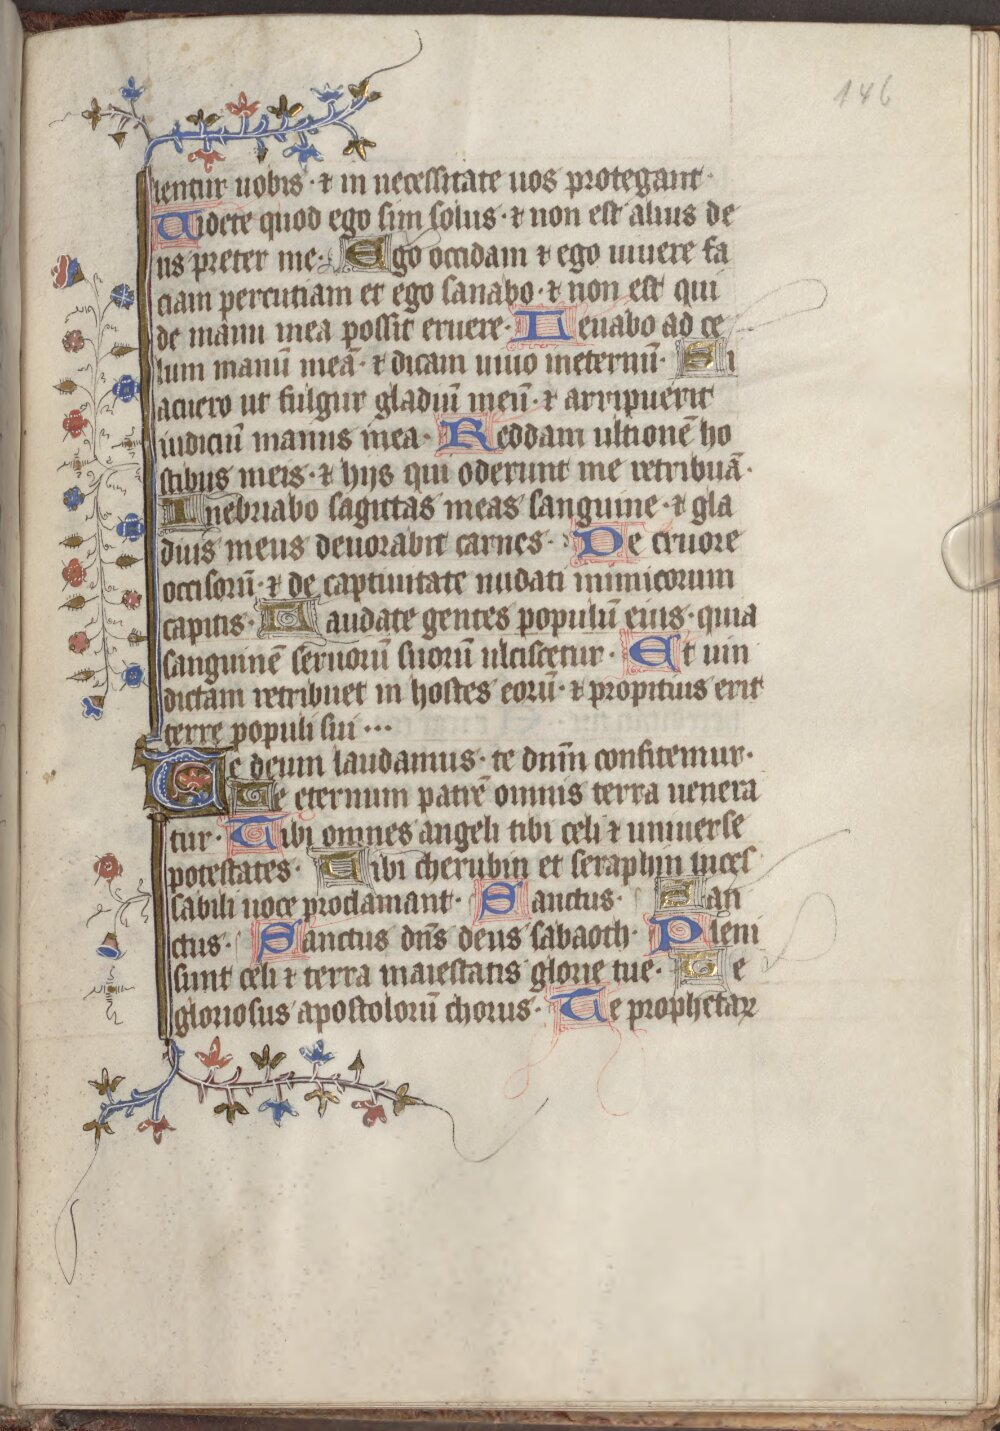 146
ientur uobis · ⁊ in necessitate uos protegant ·
Uidete quod ego sim solus · ⁊ non est alius de
us preter me · Ego occidam ⁊ ego uiuere fa
ciam percutiam et ego sanabo · ⁊ non est qui
de manu mea possit eruere · Leuabo ad ce
lum manū meā · ⁊ dicam uiuo ineternū · Si
acuero ut fulgur gladiū meū · ⁊ arripuerit
iudiciū manus mea · Reddam ultionē ho
stibus meis · ⁊ hijs qui oderunt me retribuā ·
Inebriabo sagittas meas sanguine · ⁊ gla
dius meus deuorabit carnes · De cruore
occisorū · ⁊ de captiuitate nudati inimicorum
capitis · Laudate gentes populū eius · quia
sanguinē seruorū suorū ulciscetur · Et uin
dictam retribuet in hostes eorū · ⁊ propitius erit
terre populi sui ···
Te deum laudamus · te dnm̄ confitemur ·
Te eternum patrē omnis terra uenera
tur · Tibi omnes angeli tibi celi ⁊ uniuerse
potestates · Tibi cherubin et seraphin inces
sabili uoce proclamant · Sanctus · San
ctus · Sanctus dn̄s deus sabaoth · Pleni
sunt celi ⁊ terra maiestatis glorie tue · Te
gloriosus apostolorū chorus · Te prophetaꝝ